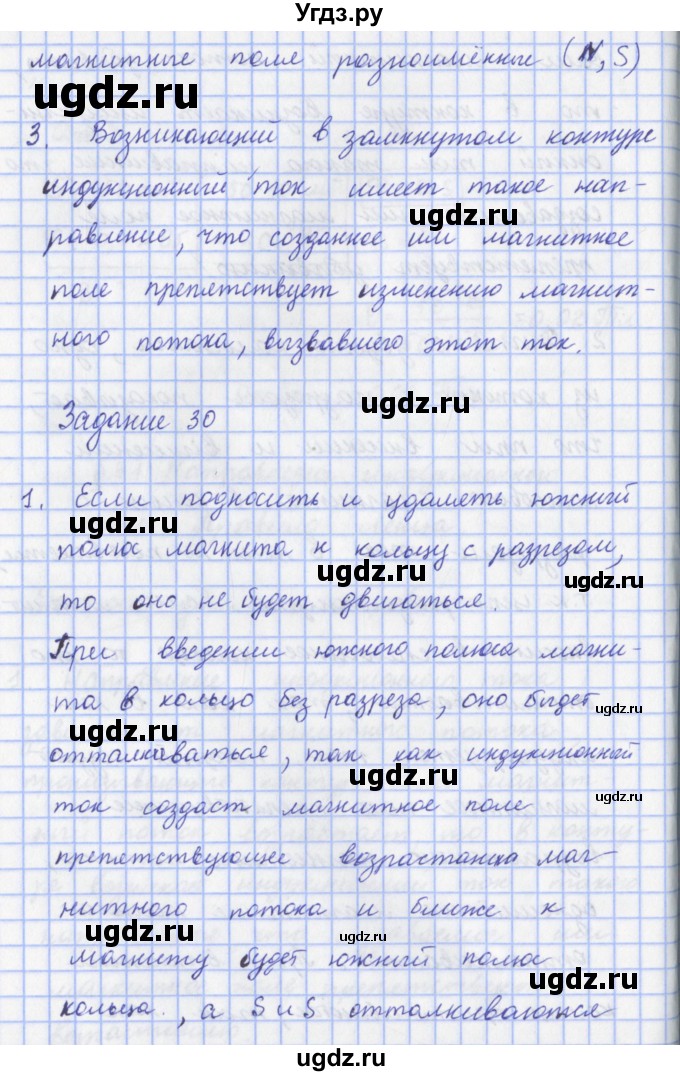 Угдз.ру
магнитные поля разноимённые (N, S)
ugdz.ru
3. Возникающий в замкнутом контуре
индукционный ток имеет такое нап-
ugdz.ru
равление, что созданное им магнитное
поле препятствует изменению магнит-
ного потока, вызвавшего этот ток.
ugdz.ru
Задание 30
1. Если подносить и удалять южный
ugdz.ru
полюс магнита к кольцу с разрезом,
ugdz.ru
то оно не будет двигаться.
При введении южного полюса магни-
та в кольцо без разреза, оно будет
ugdz.ru
ugdz.ru
отталкиваться, так как индукционный
ugdz.ru
ток создаст магнитное поле
ugdz.ru
препятствующее возрастанию маг-
нитного потока и ближе к
ugdz.ru
ugdz.ru
магниту будет южный полюс
кольца, а S и S отталкиваются
ugdz.ru